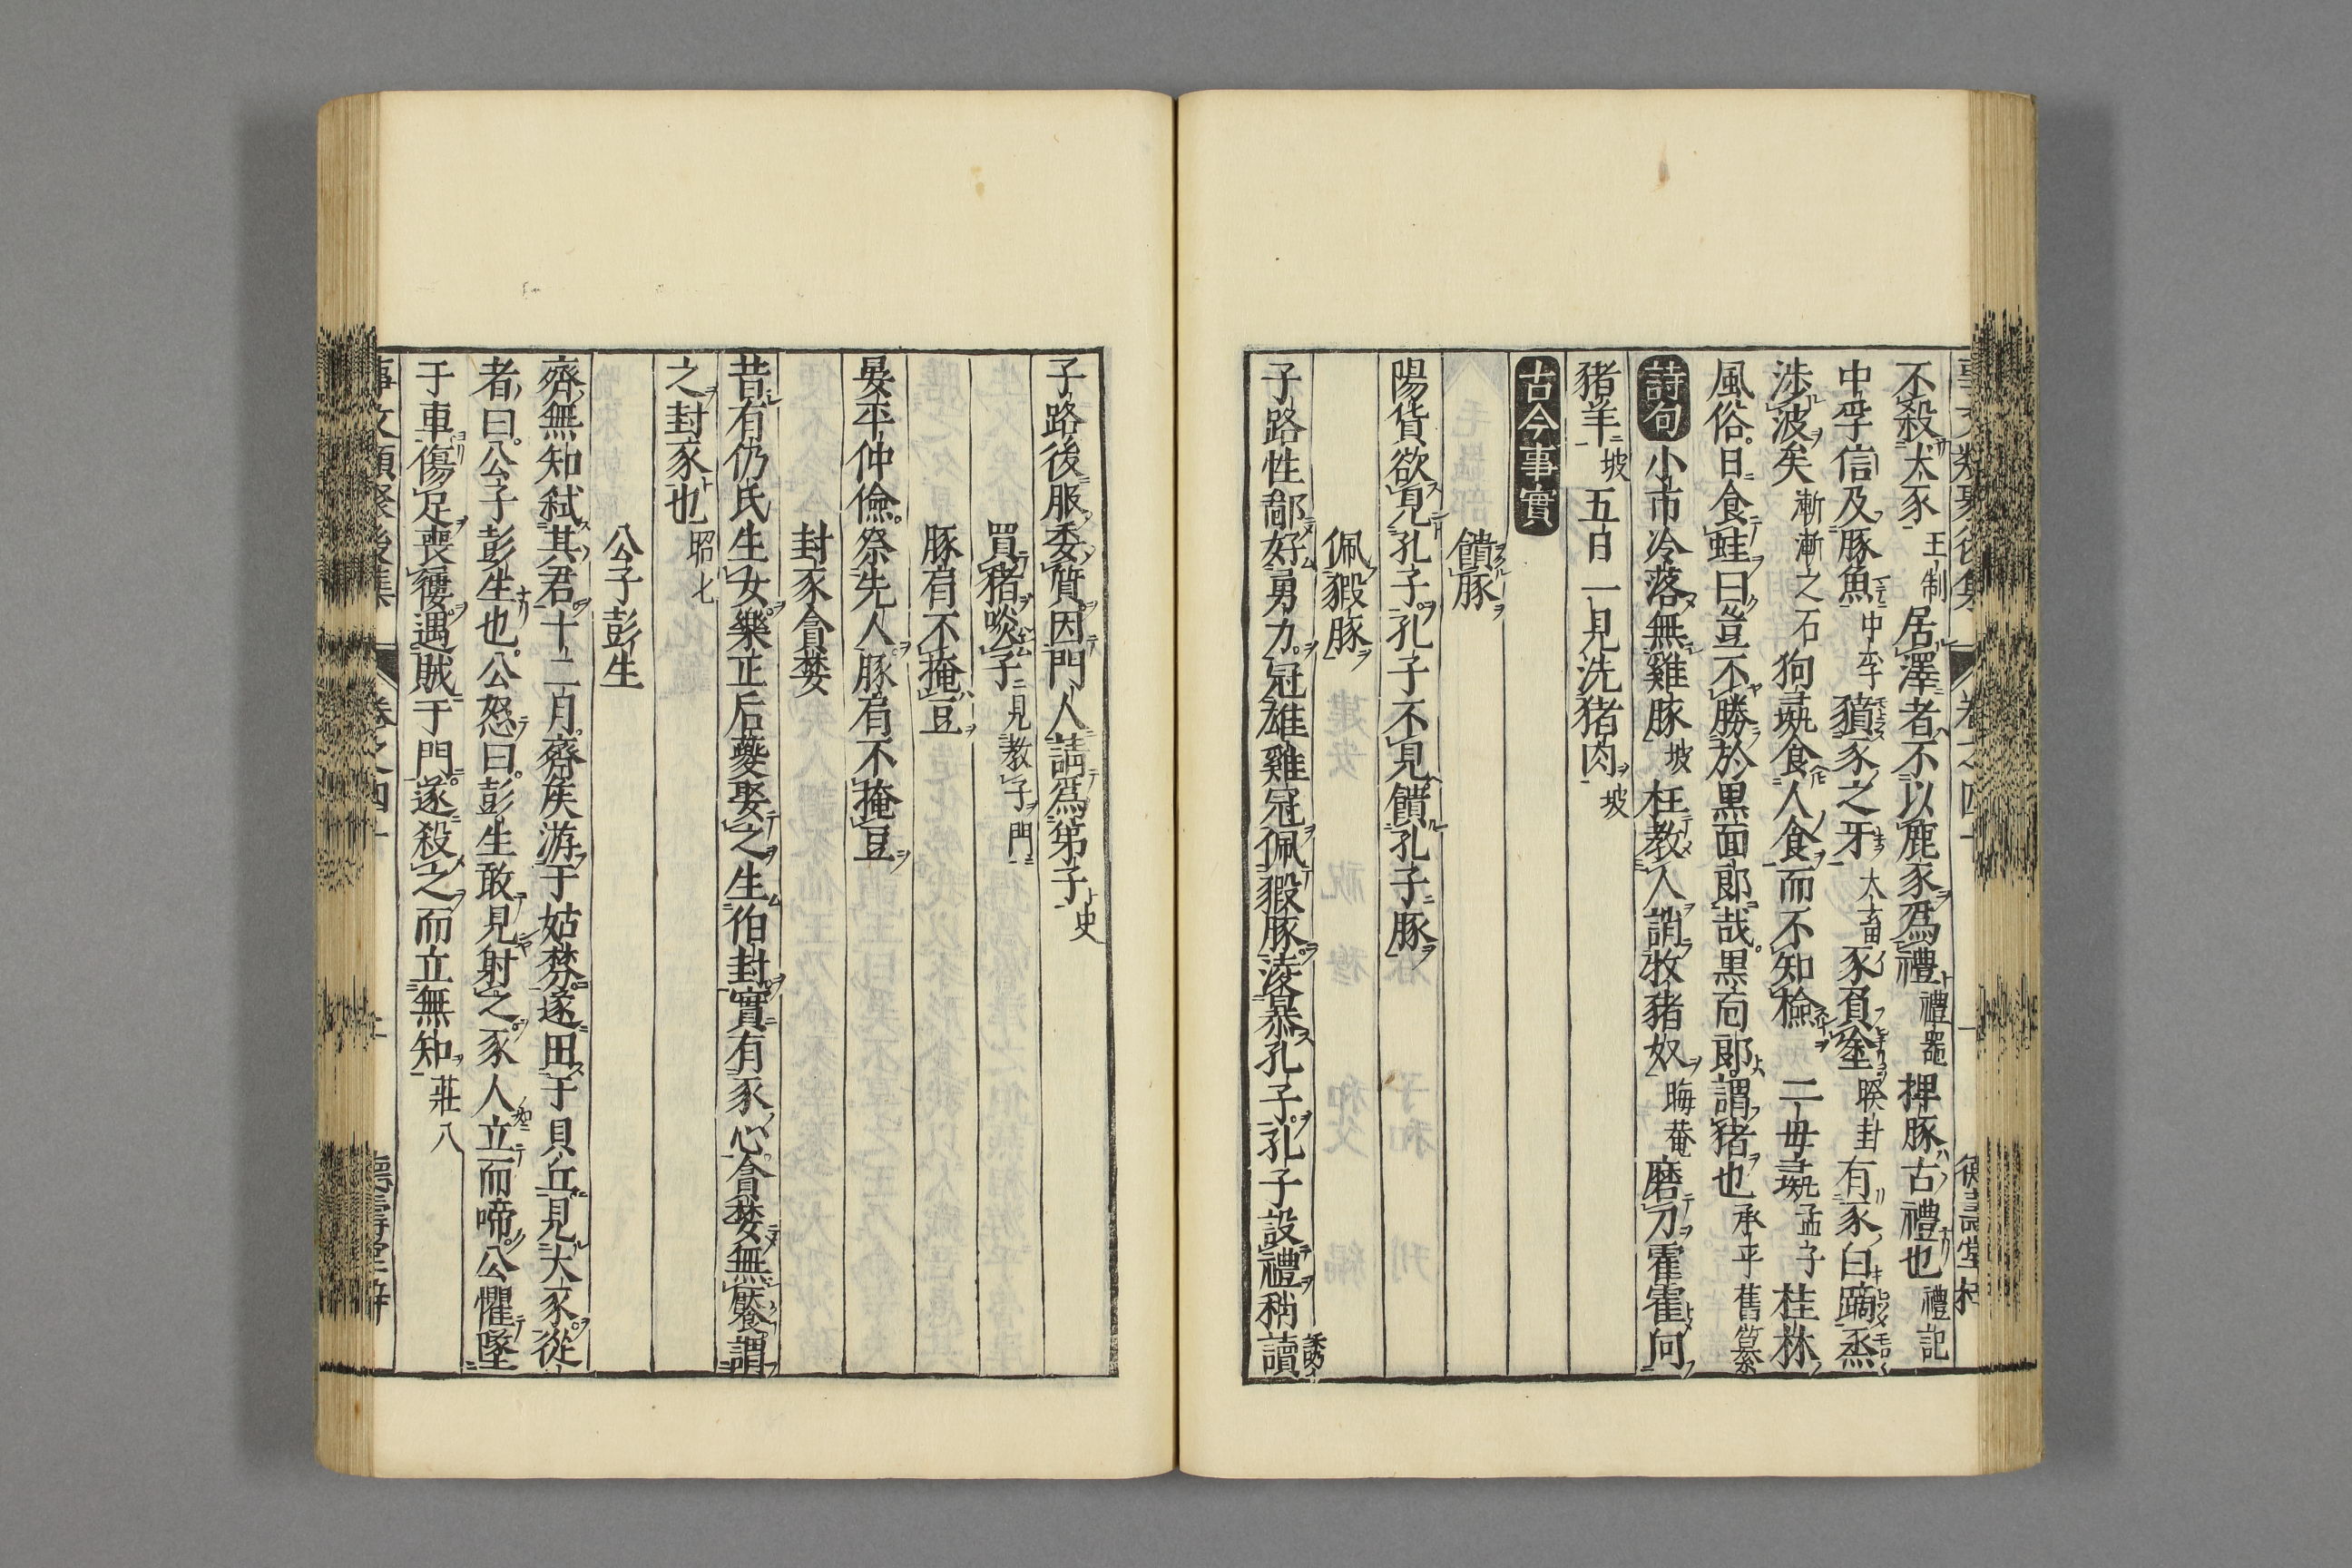 不殺犬豕王制居澤者不以鹿豕爲禮禮器捭豚古禮也禮記
中孚信及豚魚中孚豶豕之牙大畜豕負塗睽卦有豕白蹢烝
涉波矣漸漸之石狗彘食人食而不知檢二母彘孟子桂林
風俗日食蛙曰豈不勝於黑面郎哉黑面郎謂猪也承平舊纂
詩句小市冷落無雞豚坡枉教人誚牧猪奴晦菴磨刀霍霍向
猪羊坡五日一見洗猪肉坡
古今事實
饋豚
陽貨欲見孔子孔子不見饋孔子豚
佩猳豚
子路性鄙好勇力冠雄雞冠佩猳豚淩暴孔子孔子設禮稍誘
子路後服委質因門人請爲弟子史
買猪啖子見教子門
豚肩不掩豆
晏平仲儉祭先人豚肩不掩豆
封豕貪婪
昔有仍氏生女樂正后夔娶之生伯封實有豕心貪婪無饜謂
之封豕也昭七
公子彭生
齊無知弒其君十二月齊侯游于姑棼遂田于貝丘見大豕從
者曰公子彭生也公怒曰彭生敢見射之豕人立而啼公懼墜
于車傷足喪屨遇賊于門遂殺之而立無知莊八
事文類聚後集 卷之四十